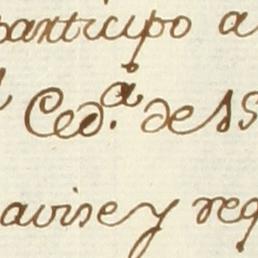 participo a
Ced.ª de SS
avise y req